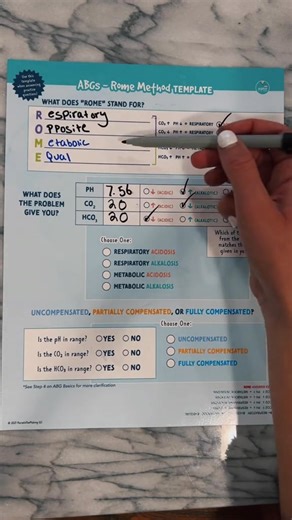 Use this template when answering practice questions!
ABGs - Rome Method TEMPLATE
WHAT DOES "ROME" STAND FOR?
Respiratory
Opposite
Metabolic
Equal
CO₂ ↑ PH ↓ = RESPIRATORY
CO₂ ↓ PH ↑ = RESPIRATORY
HCO₃ ↑ PH ↑ =
WHAT DOES THE PROBLEM GIVE YOU?
PH 7.56 ↓ (ACIDIC) ↑ (ALKALOTIC)
CO₂ 20 ↑ (ACIDIC) ↓ (ALKALOTIC)
HCO₃ 20 ↓ (ACIDIC) ↑ (ALKALOTIC)
Choose One:
RESPIRATORY ACIDOSIS
RESPIRATORY ALKALOSIS
METABOLIC ACIDOSIS
METABOLIC ALKALOSIS
Which of
from the
matches th
given in yo
UNCOMPENSATED, PARTIALLY COMPENSATED, OR FULLY COMPENSATED?
Choose One:
Is the pH in range? YES NO
Is the CO₂ in range? YES NO
Is the HCO₃ in range? YES NO
UNCOMPENSATED
PARTIALLY COMPENSATED
FULLY COMPENSATED
*See Step 4 on ABG Basics for more clarification